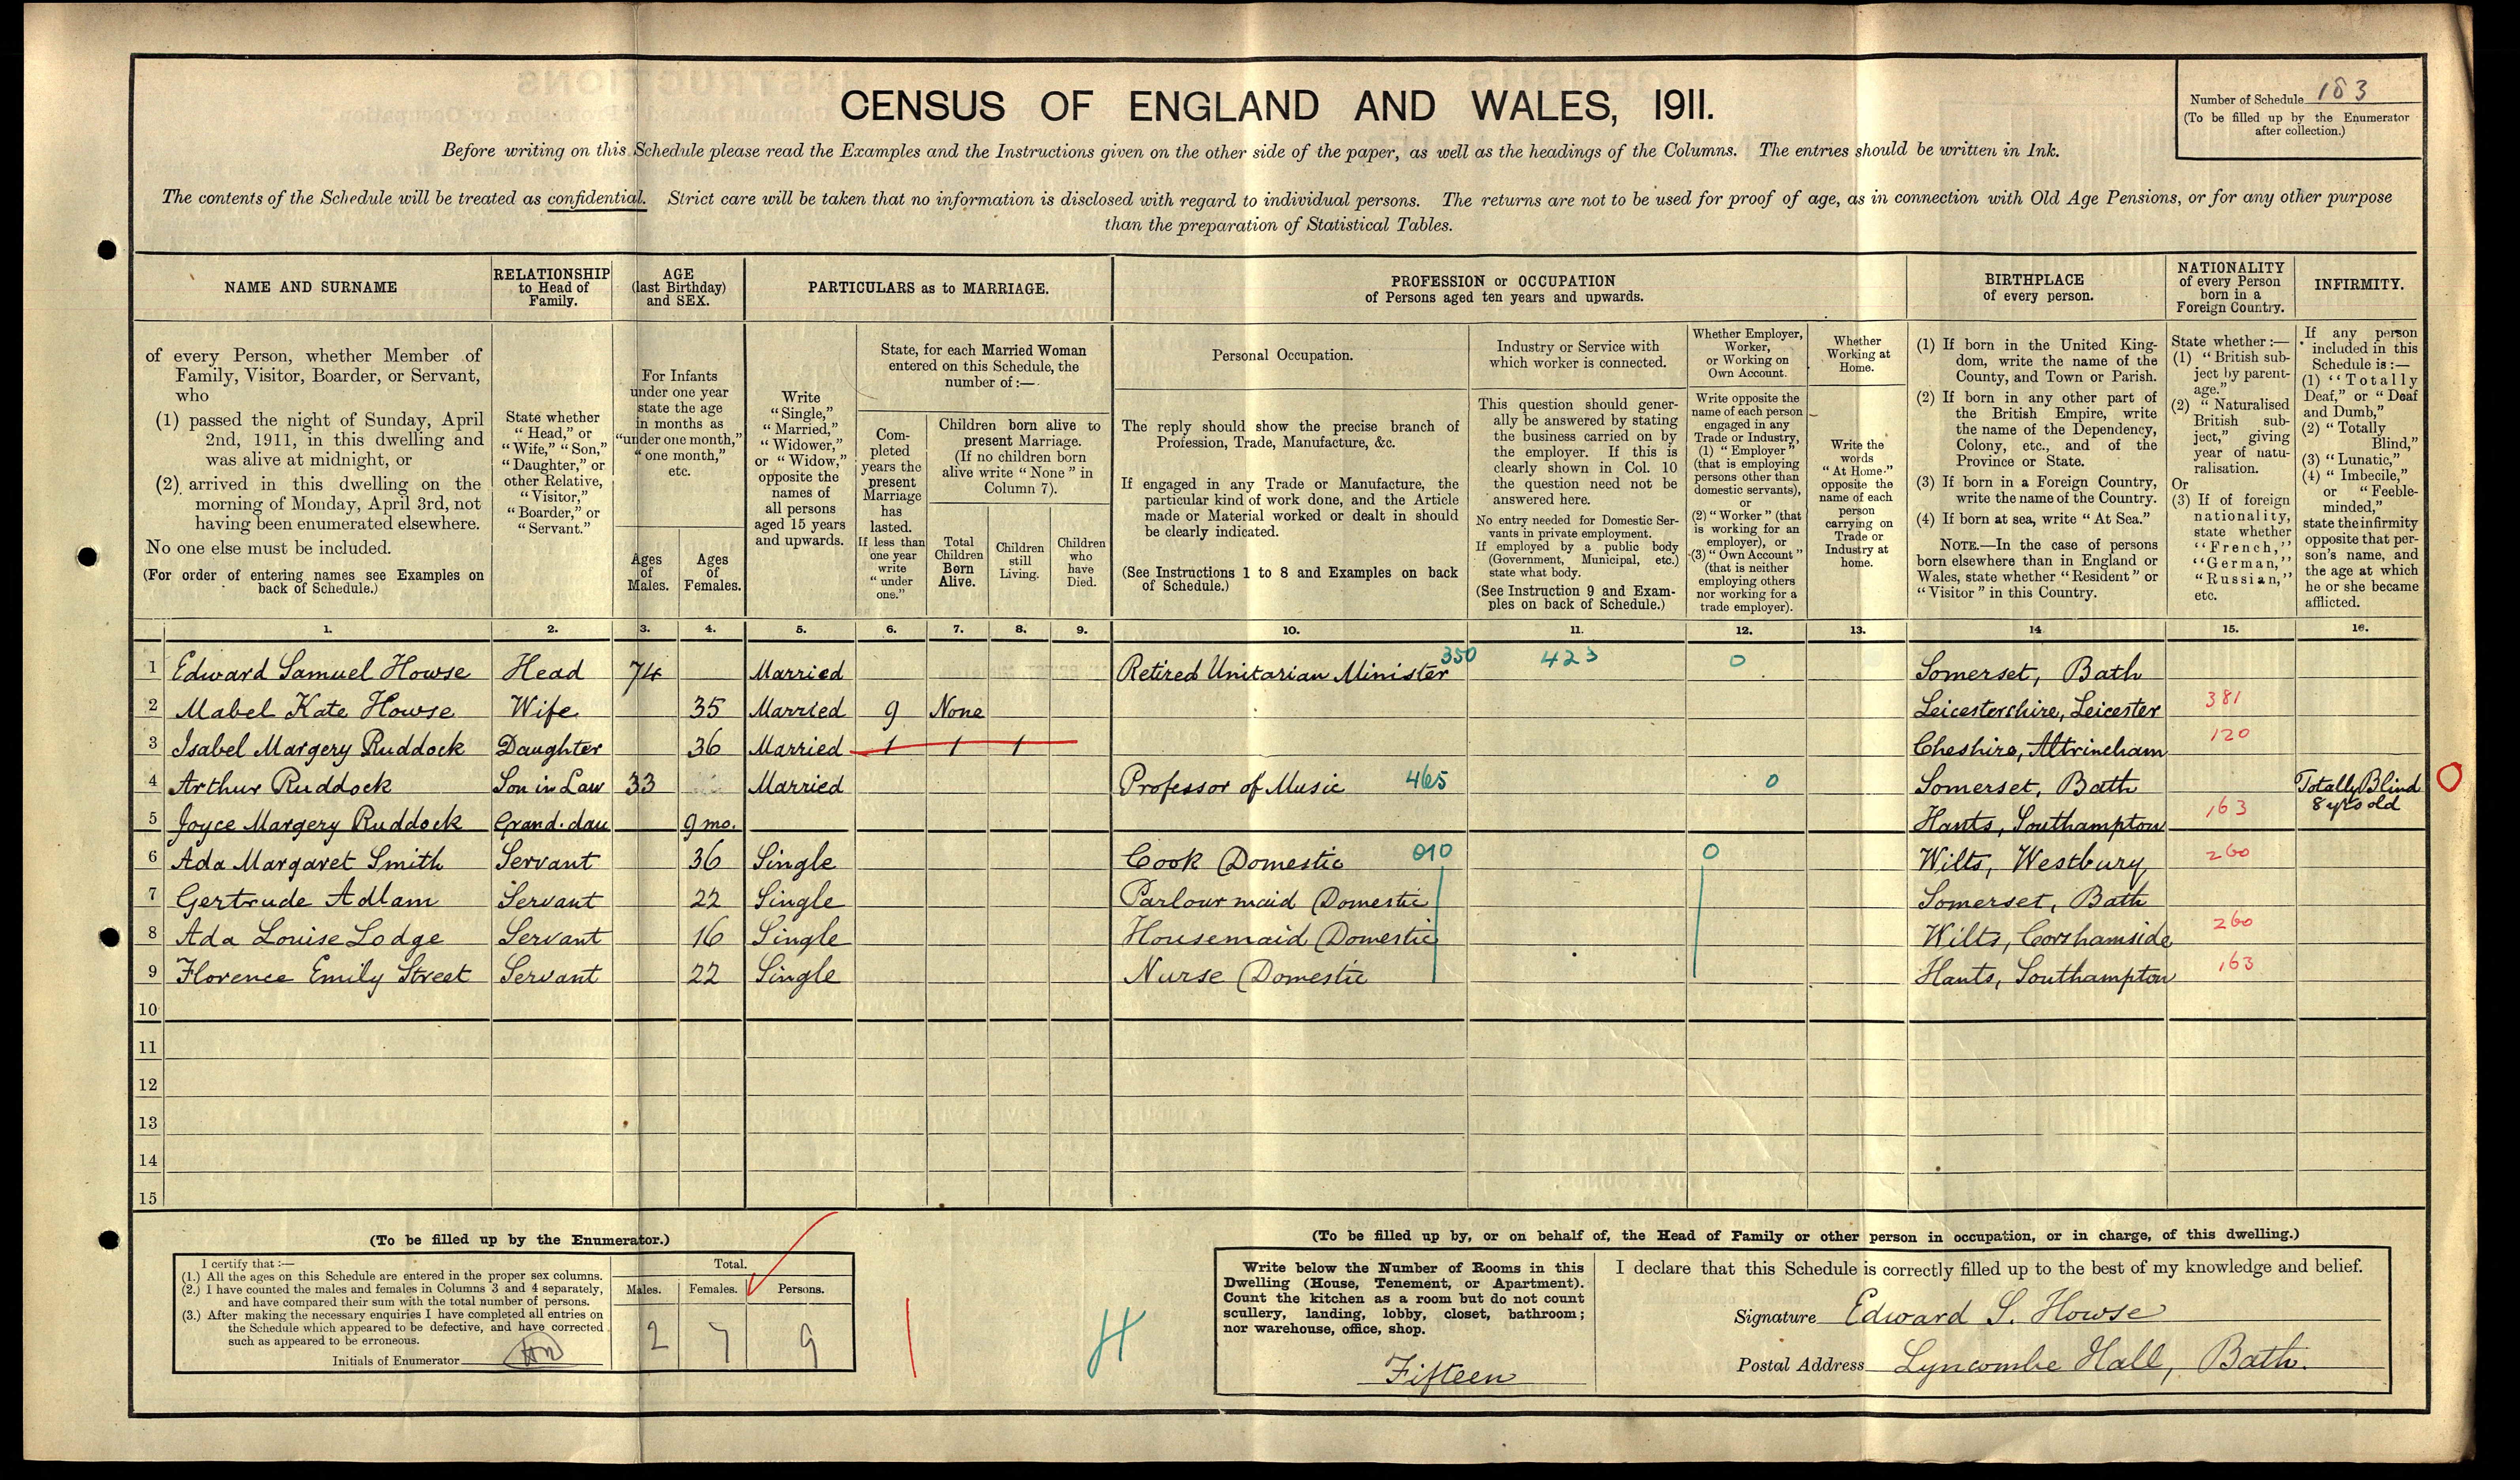 CENSUS OF ENGLAND AND WALES, 1911.
Number of Schedule 183
(To be filled up by the Enumerator
after collection.)
Before writing on this Schedule please read the Examples and the Instructions given on the other side of the paper, as well as the headings of the Columns. The entries should be written in Ink.
The contents of the Schedule will be treated as confidential. Strict care will be taken that no information is disclosed with regard to individual persons. The returns are not to be used for proof of age, as in connection with Old Age Pensions, or for any other purpose
than the preparation of Statistical Tables.
NAME AND SURNAME
of every Person, whether Member of
Family, Visitor, Boarder, or Servant,
who
(1) passed the night of Sunday, April
2nd, 1911, in this dwelling and
was alive at midnight, or
(2) arrived in this dwelling on the
morning of Monday, April 3rd, not
having been enumerated elsewhere.
No one else must be included.
(For order of entering names see Examples on
back of Schedule.)
RELATIONSHIP
to Head of
Family.
State whether
"Head," or
"Wife," "Son,"
"Daughter," or
other Relative,
"Visitor,"
"Boarder," or
"Servant."
AGE
(last Birthday)
and SEX.
For Infants
under one year
state the age
in months as
"under one month,"
"one month,"
etc.
Ages
of
Males.
Ages
of
Females.
PARTICULARS as to MARRIAGE.
Write
"Single,"
"Married,"
"Widower,"
or "Widow,"
opposite the
names of
all persons
aged 15 years
and upwards.
State, for each Married Woman
entered on this Schedule, the
number of:—
Com-
pleted
years the
present
Marriage
has
lasted.
If less than
one year
write
"under
one."
Children born alive to
present Marriage.
(If no children born
alive write "None" in
Column 7).
Total
Children
Born
Alive.
Children
still
Living.
Children
who
have
Died.
PROFESSION or OCCUPATION
of Persons aged ten years and upwards.
Personal Occupation.
The reply should show the precise branch of
Profession, Trade, Manufacture, &c.
If engaged in any Trade or Manufacture, the
particular kind of work done, and the Article
made or Material worked or dealt in should
be clearly indicated.
(See Instructions 1 to 8 and Examples on back
of Schedule.)
Industry or Service with
which worker is connected.
This question should gener-
ally be answered by stating
the business carried on by
the employer. If this is
clearly shown in Col. 10
the question need not be
answered here.
No entry needed for Domestic Ser-
vants in private employment.
If employed by a public body
(Government, Municipal, etc.)
state what body.
(See Instruction 9 and Exam-
ples on back of Schedule.)
Whether Employer,
Worker,
or Working on
Own Account.
Write opposite the
name of each person
engaged in any
Trade or Industry,
(1) "Employer"
(that is employing
persons other than
domestic servants),
or
(2) "Worker" (that
is working for an
employer), or
(3) "Own Account"
(that is neither
employing others
nor working for a
trade employer).
Whether
Working at
Home.
Write the
words
"At Home"
opposite the
name of each
person
carrying on
Trade or
Industry at
home.
BIRTHPLACE
of every person.
(1) If born in the United King-
dom, write the name of the
County, and Town or Parish.
(2) If born in any other part of
the British Empire, write
the name of the Dependency,
Colony, etc., and of the
Province or State.
(3) If born in a Foreign Country,
write the name of the Country.
(4) If born at sea, write "At Sea."
NOTE.—In the case of persons
born elsewhere than in England or
Wales, state whether "Resident" or
"Visitor" in this Country.
NATIONALITY
of every Person
born in a
Foreign Country.
State whether:—
(1) "British sub-
ject by parent-
age."
(2) "Naturalised
British sub-
ject," giving
year of natu-
ralisation.
Or
(3) If of foreign
nationality,
state whether
"French,"
"German,"
"Russian,"
etc.
INFIRMITY.
If any person
included in this
Schedule is:—
(1) "Totally
Deaf," or "Deaf
and Dumb,"
(2) "Totally
Blind,"
(3) "Lunatic,"
(4) "Imbecile,"
or "Feeble-
minded,"
state the infirmity
opposite that per-
son's name, and
the age at which
he or she became
afflicted.
1. 2. 3. 4. 5. 6. 7. 8. 9. 10. 11. 12. 13. 14 15. 16.
1 Edward Samuel Howse Head 74 Married Retired Unitarian Minister 350 423 0 Somerset, Bath
2 Mabel Kate Howse Wife 35 Married 9 None Leicestershire, Leicester 381
3 Isabel Margery Ruddock Daughter 36 Married 1 1 1 Cheshire, Altrincham 120
4 Arthur Ruddock Son in Law 33 Married Professor of Music 465 0 Somerset, Bath Totally Blind
8 yrs old
5 Joyce Margery Ruddock Grand. dau 9 mo. Hants, Southampton 163
6 Ada Margaret Smith Servant 36 Single Cook (Domestic 010 0 Wilts, Westbury 260
7 Gertrude Adlam Servant 22 Single Parlour maid (Domestic Somerset, Bath
8 Ada Louise Lodge Servant 16 Single Housemaid (Domestic Wilts, Corshamside 260
9 Florence Emily Street Servant 22 Single Nurse (Domestic Hants, Southampton 163
10
11
12
13
14
15
(To be filled up by the Enumerator.)
I certify that:—
(1.) All the ages on this Schedule are entered in the proper sex columns.
(2.) I have counted the males and females in Columns 3 and 4 separately,
and have compared their sum with the total number of persons.
(3.) After making the necessary enquiries I have completed all entries on
the Schedule which appeared to be defective, and have corrected
such as appeared to be erroneous.
Initials of Enumerator
Total.
Males. Females. Persons.
2 7 9
H
(To be filled up by, or on behalf of, the Head of Family or other person in occupation, or in charge, of this dwelling.)
Write below the Number of Rooms in this
Dwelling (House, Tenement, or Apartment).
Count the kitchen as a room but do not count
scullery, landing, lobby, closet, bathroom;
nor warehouse, office, shop.
Fifteen
I declare that this Schedule is correctly filled up to the best of my knowledge and belief.
Signature Edward S. Howse
Postal Address Lyncombe Hall, Bath.